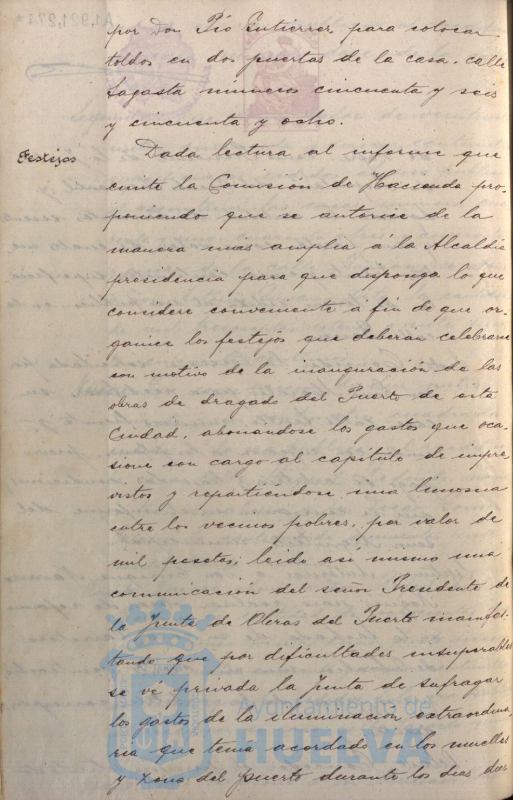 por Don Pío Gutierrez para colocar
toldos en dos puertas de la casa, calle
Sagasta numeros cincuenta y seis
y cincuenta y ocho.
Festejos
Dada lectura al informe que
emite la Comisión de Hacienda pro-
poniendo que se autorice de la
manera mas amplia á la Alcaldia
presidencia para que disponga lo que
considere conveniente á fin de que or-
ganice los festejos que deberán celebrarse
con motivo de la inauguración de las
obras de dragado del Puerto de esta
Ciudad, abonándose los gastos que oca-
sione con cargo al capítulo de impre
vistos y repartiéndose una limosna
entre los vecinos pobres, por valor de
mil pesetas; leido asi mismo una
comunicación del señor Presidente de
la Junta de Obras del Puerto manifes-
tando que por dificultades insuperables
se vé privada la Junta de sufragar
los gastos de la iluminación extraordina
ria que tenia acordado en los muelles
y zona del puerto durante los dias
Ayuntamiento de
HUELVA